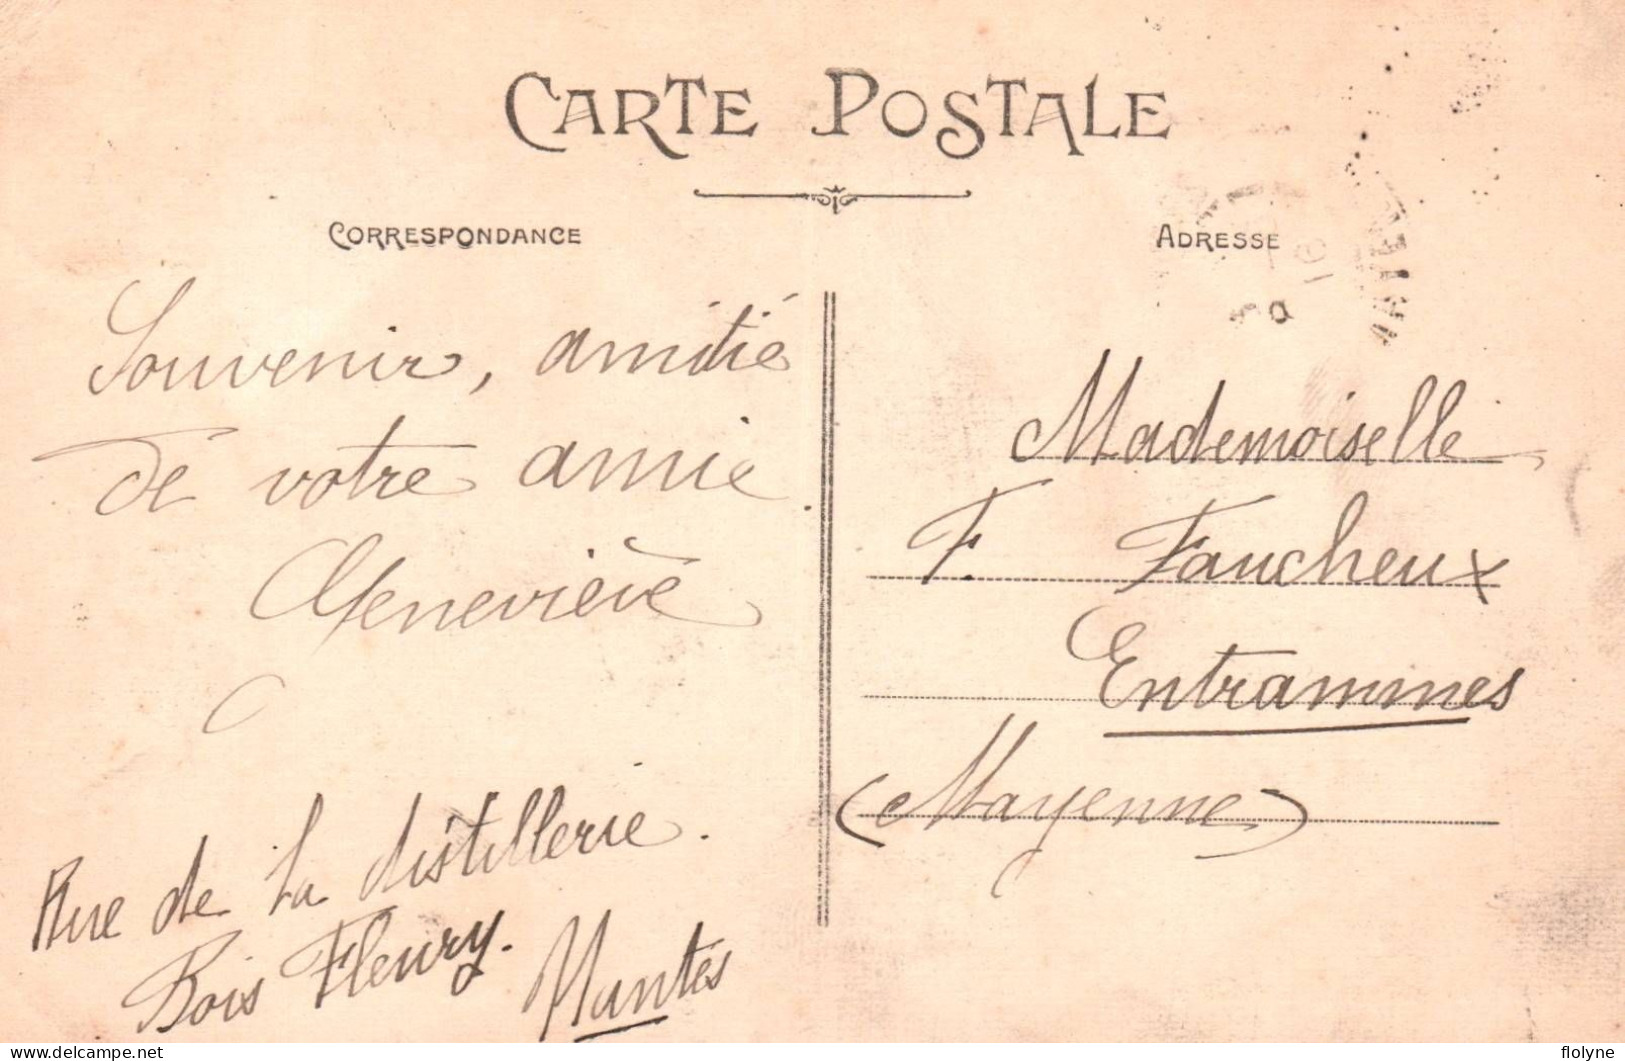 CARTE POSTALE
CORRESPONDANCE
ADRESSE
Souvenir, amitié
de votre amie.
Geneviève
Rue de La distillerie.
Bois Fleury.
Nantes
Mademoiselle
F. Faucheux
Entrammes
(Mayenne)
delcampe.net
flolyne